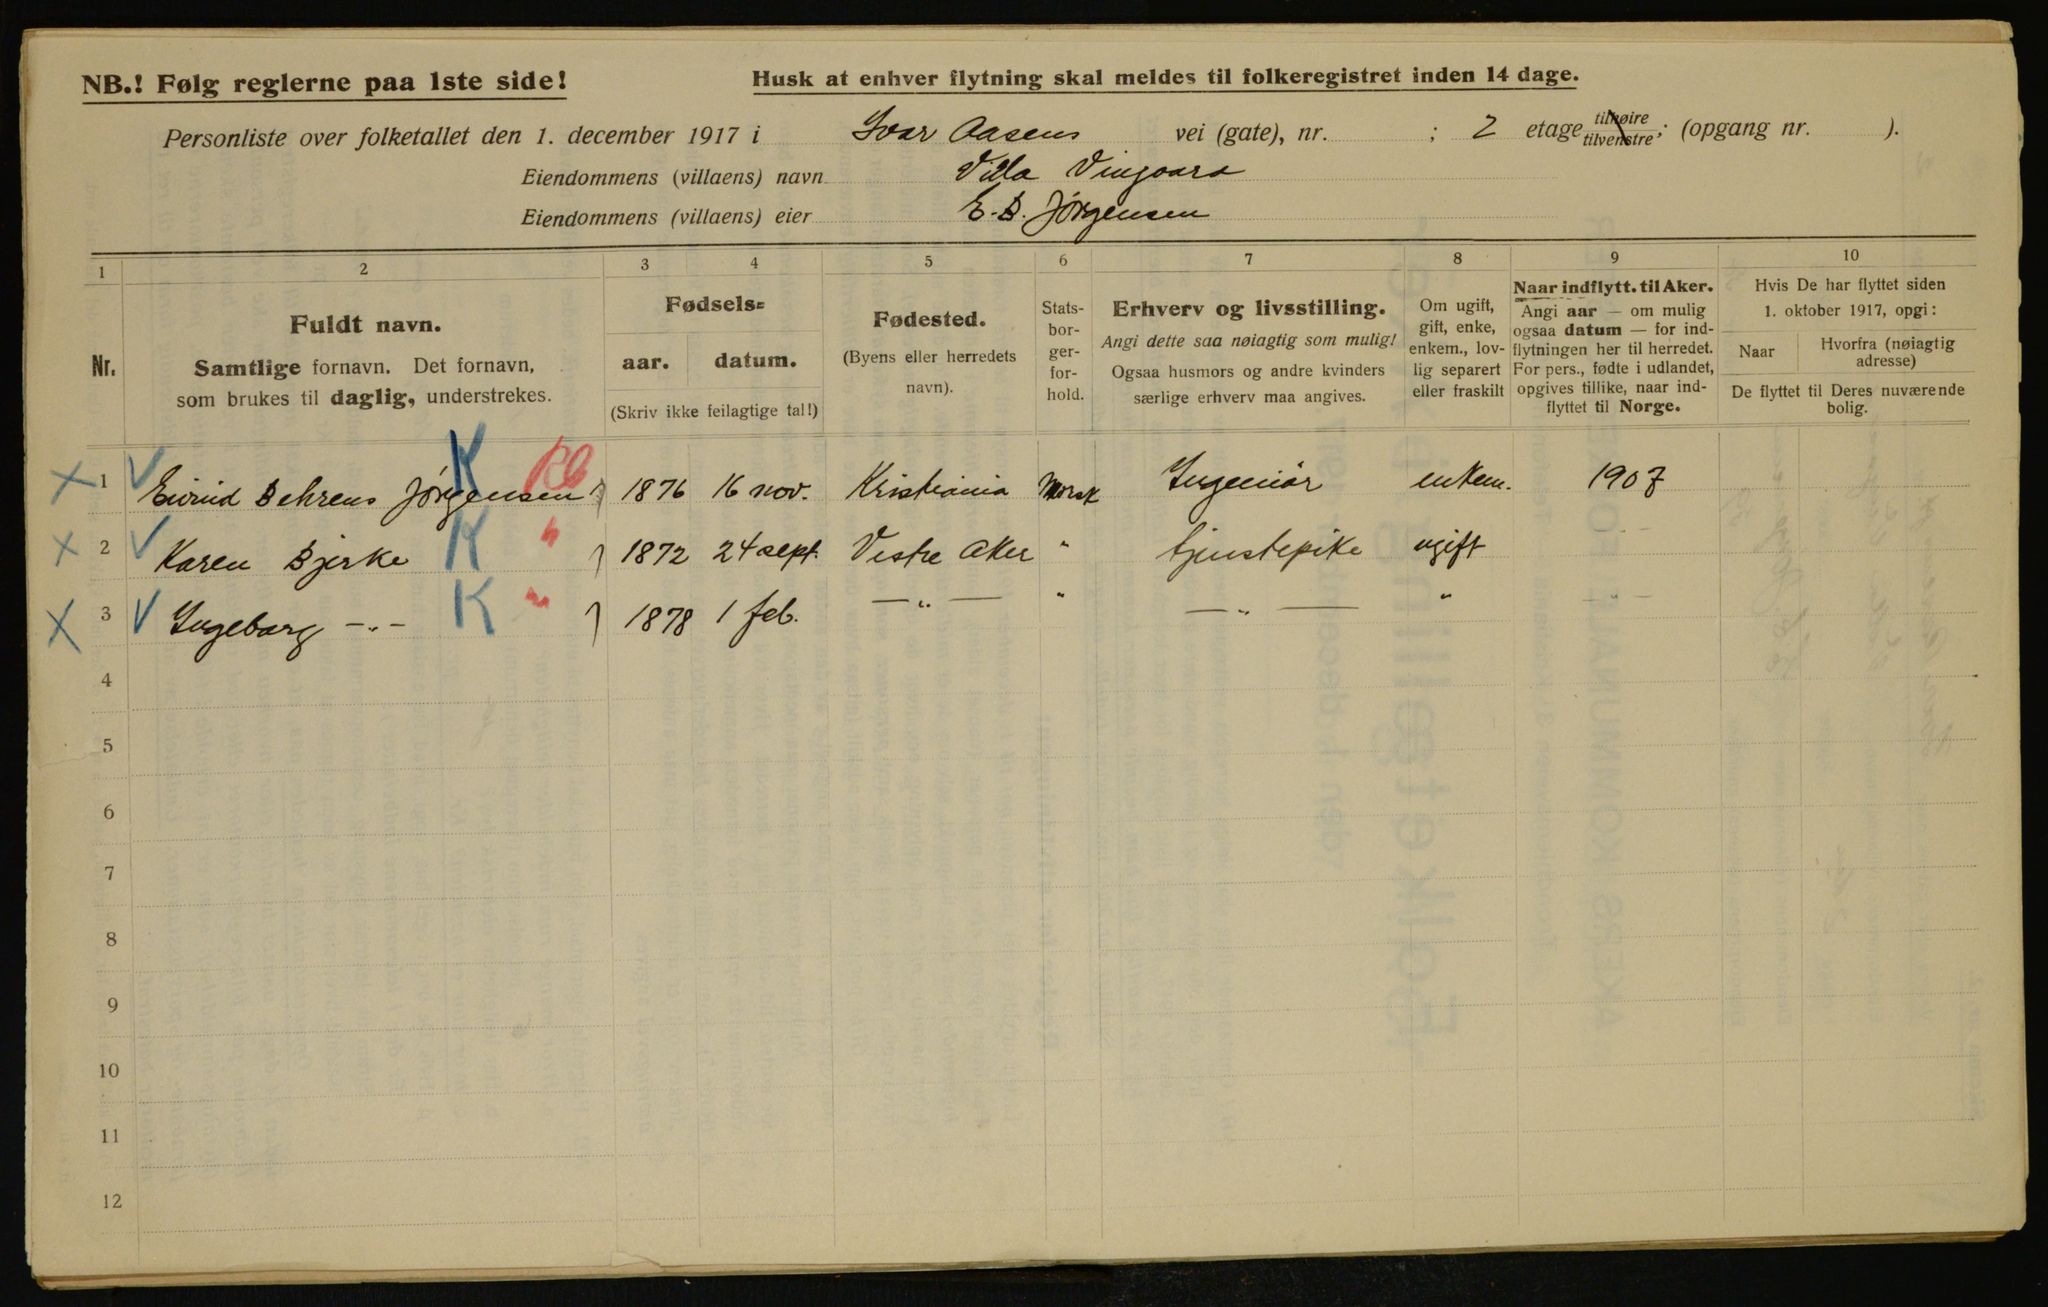 NB.! Følg reglerne paa 1ste side!
Husk at enhver flytning skal meldes til folkeregistret inden 14 dage.
Personliste over folketallet den 1. december 1917 i Ivar Aasens vei (gate), nr. ; 2 etage tilhøire tilvenstre; (opgang nr. ).
Eiendommens (villaens) navn Villa Vingaara
Eiendommens (villaens) eier E. B. Jørgensen
1 2 3 4 5 6 7 8 9 10
Nr.
Fuldt navn.
Samtlige fornavn. Det fornavn,
som brukes til daglig, understrekes.
Fødsels-
aar. datum.
(Skriv ikke feilagtige tal!)
Fødested.
(Byens eller herredets
navn).
Stats-
bor-
ger-
for-
hold.
Erhverv og livsstilling.
Angi dette saa nøiagtig som mulig!
Ogsaa husmors og andre kvinders
særlige erhverv maa angives.
Om ugift,
gift, enke,
enkem., lov-
lig separert
eller fraskilt
Naar indflytt. til Aker.
Angi aar — om mulig
ogsaa datum — for ind-
flytningen her til herredet.
For pers., fødte i udlandet,
opgives tillike, naar ind-
flyttet til Norge.
Hvis De har flyttet siden
1. oktober 1917, opgi:
Naar
Hvorfra (nøiagtig
adresse)
De flyttet til Deres nuværende
bolig.
K Rb
X 1 V Eivind Behrens Jørgensen 1876 16 nov. Kristiania Norsk Ingeniør enkem. 1907
X 2 V Karen Bjerke K " 1872 24 sept. Vestre Aker " tjenstepike ugift
X 3 V Ingeborg —„— K " 1878 1 feb. —„— " —„— "
4
5
6
7
8
9
10
11
12